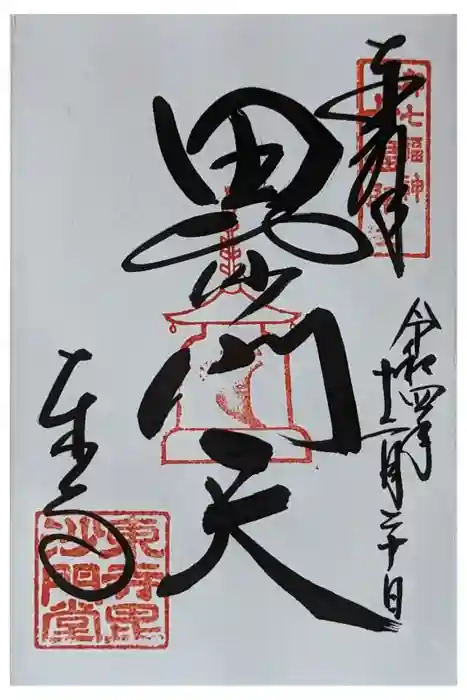 奉拝
令和四年
十二月二十日
毘沙門天
東寺
東寺毘
沙門堂